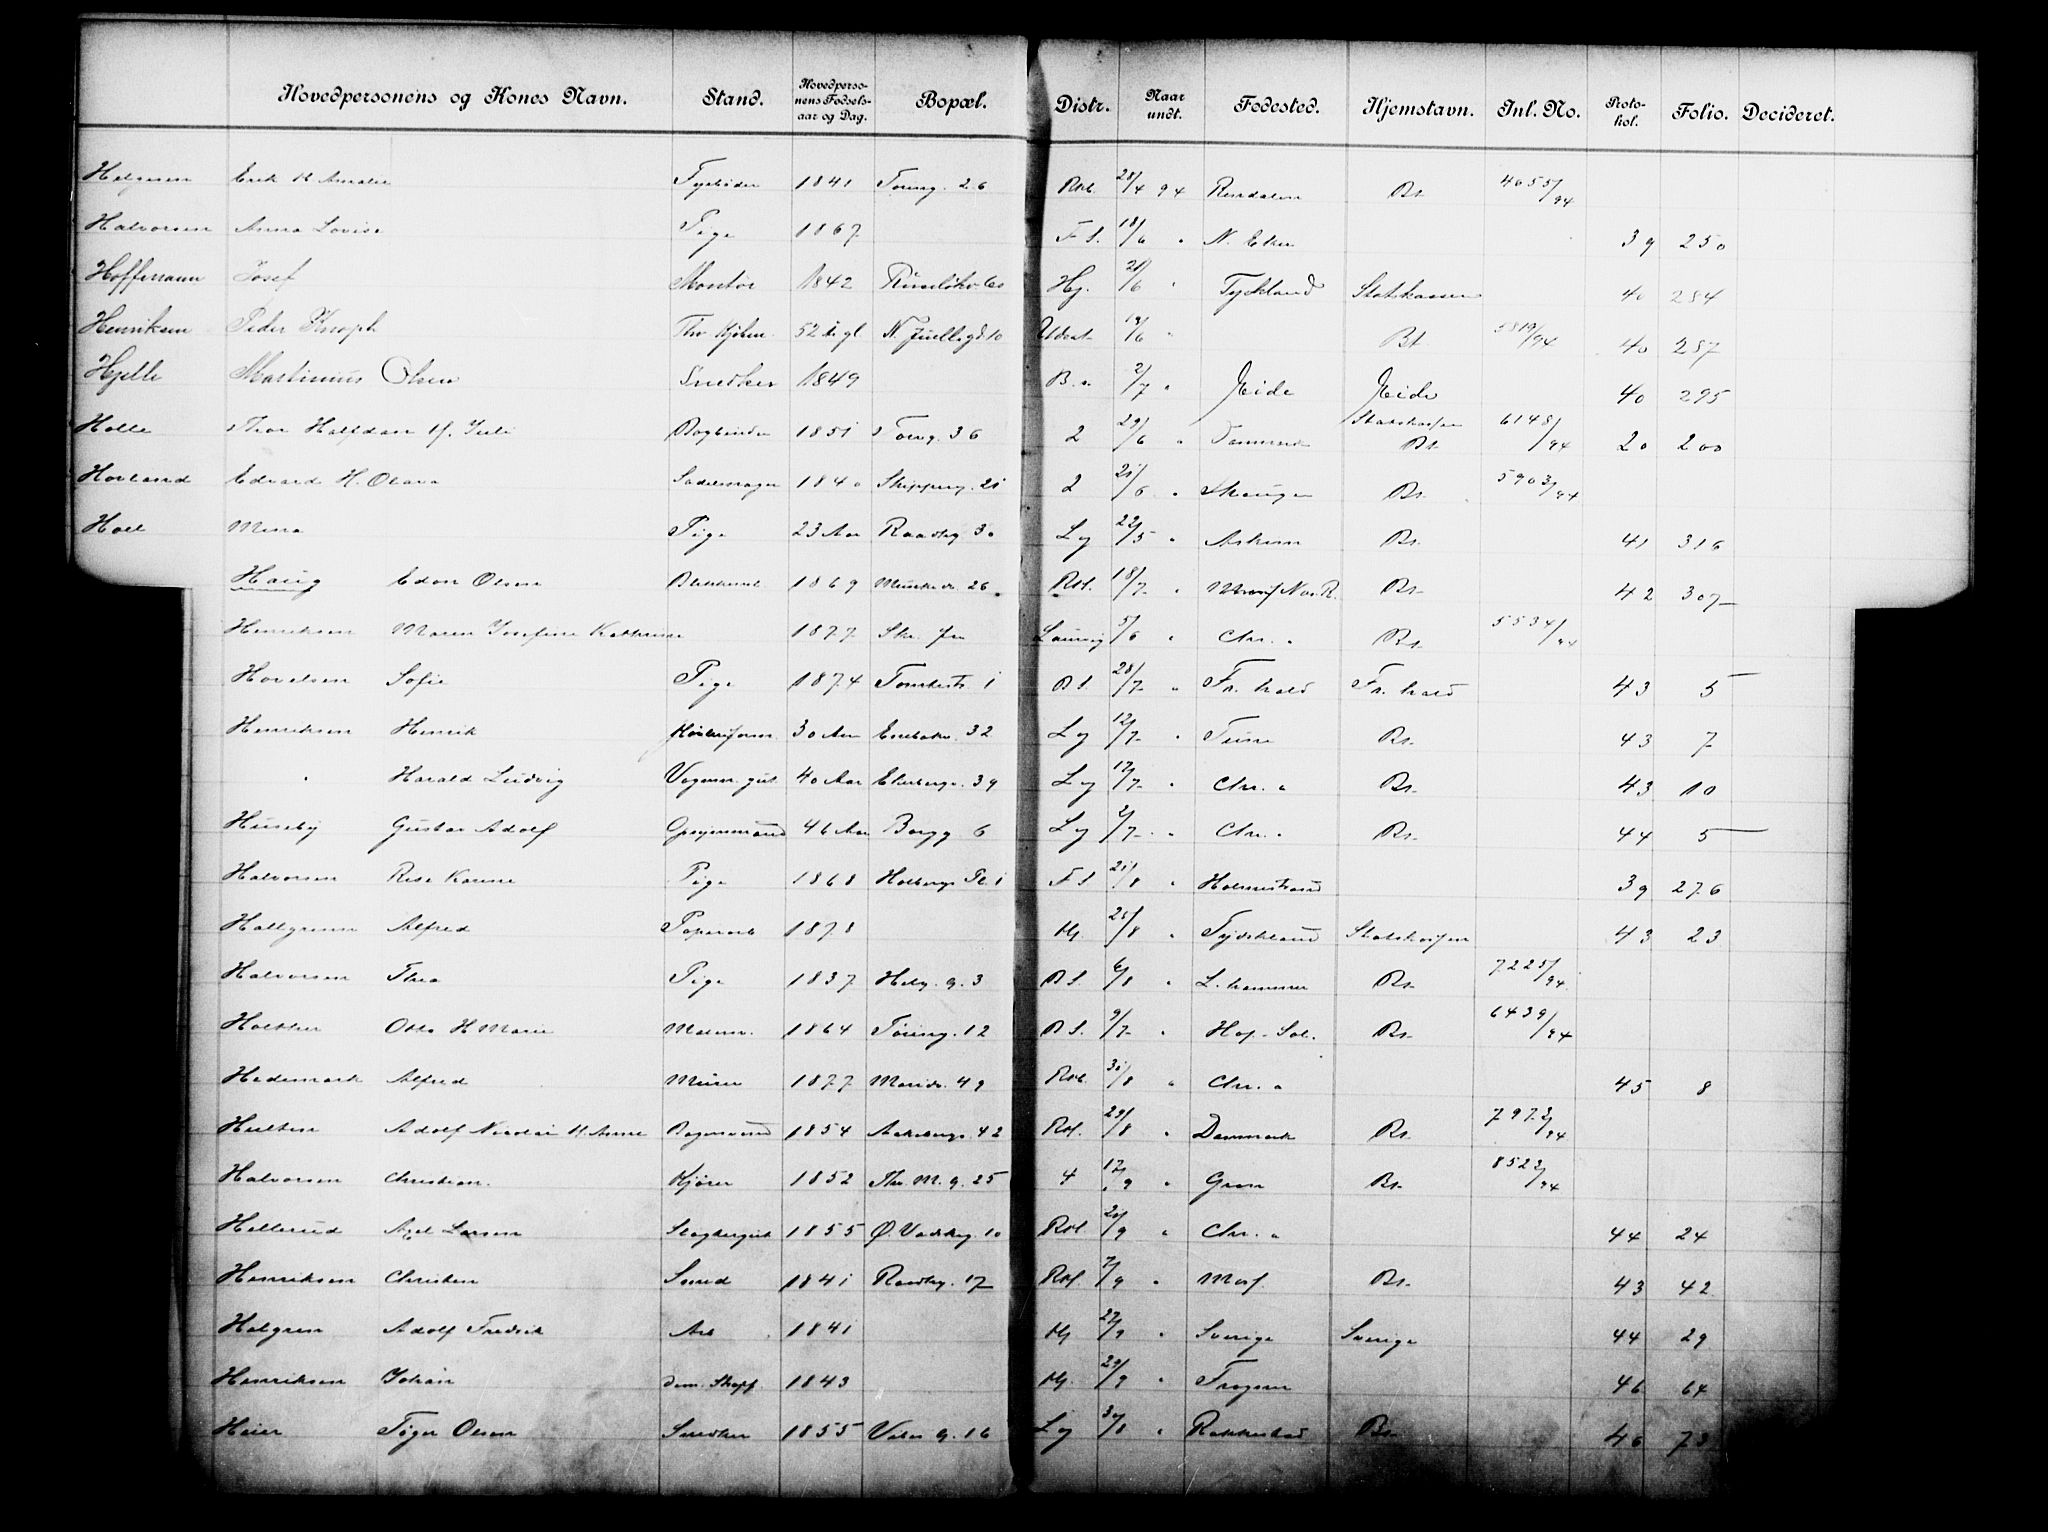 Hovedpersonens og Kones Navn. Stand. Hovedperso-nens Fødsels-aar og Dag. Bopæl. Distr. Naar undt. Fødested. Hjemstavn. Inl. No. Proto-kol. Folio. Decideret.
Helgesen Erik H Amalie 1841 Toveng. 26 Rod. 28/4 94 Rendalen Bt 4655/94
Halvorsen Anna Lovise Pige 1867 F S. 18/6 " N. Eker 39 250
Hoffmann Josef Montør 1842 Ruseløkv 60 Hj. 21/6 " Tyskland Statskassen 40 284
Henriksen Peder Knoph 52 A gl. N. Juellsgd 10 Udest 19/6 " Bt. 5819/94 40 287
Hjelle Martinius Olsen Snedker 1849 2/7 " Eide Eide 40 295
Holle Thor Halfdan H. Juli Bogbinder 1851 Torvg. 36 2 29/6 " Danmark Statskassen Bt 6148/94 20 200
Hovland Edvard H. Olava Sadelmager 1840 Skipperg. 21 2 21/6 " Skaugen Bt. 5903/94
Holl Mina Pige 23 Aar Raadhg 30 Lg 22/5 " Askim Bt. 41 316
Haug Edon Olsen Blikkensl. 1869 Munkedv. 26. Rod. 18/7 " Bt- 42 307
Henriksen Maren Josefine Kathrine 1877 Laurvig 5/6 " Chr. " Bt. 5534/94
Hovelsen Sofie Pige 1874 Tomtestr. 1 B S. 28/7 " Fr. hald Fr. hald 43 5
Henriksen Henrik 30 Aar Enebakv. 32 Lg 12/7 " Tune Bt- 43 7
" Harald Ludvig Vognm. gut 40 Aar Ekebergv. 39 Lg 12/7 " Chr. " Bt- 43 10
Huseby Gustav Adolf Opsynsmand 46 Aar Borgg 6 Lg 2/7 " Chr. " Bt- 44 5
Halvorsen Rise Karine Pige 1868 Holbergs Pl. 1 F S 21/8 " Holmestrand 39 276
Hallgrimm Alfred Paperarb 1878 Hj. 25/8 " Tydskland Statskassen 43 23
Halvorsen Thea Pige 1837 Helg. g. 3 B S. 6/8 " L. hammer Bt- 7225/94
Holther Otto H Marie Malerm. 1864 Tøieng. 12 B S. 9/7 " Hof. Sol. Bt- 6439/94
Hedemark Alfred Murer 1877 Maridv. 49 Rod. 31/8 " Chr. " 45 8
Hulten Adolf Nicolai H Anne Bogersvend 1854 Aakebergv. 42 Rod. 23/8 " Danmark Bt- 7972/94
Halvorsen Christian. Kjører 1852 Thv. M. g. 25 4 17/9 " Gran Bt- 8522/94
Hellerud Axel Larsen 1855 Ø. Vaskeg. 10 Rod. 20/9 " Chr. " 44 24
Henriksen Christian Smed 1841 Raadhg. 17 Rod. 7/9 " Bt- 43 42
Holgren Adolf Fredrik Arb 1841 Hj 22/9 " Sverige Sverige 44 29
Henriksen Johan 1843 Hj. 29/9 " Trøgen 46 64
Heier Tøger Olsen Snedker 1855 Vater g. 16 Lg 30/8 " Rakkestad Bt- 46 73